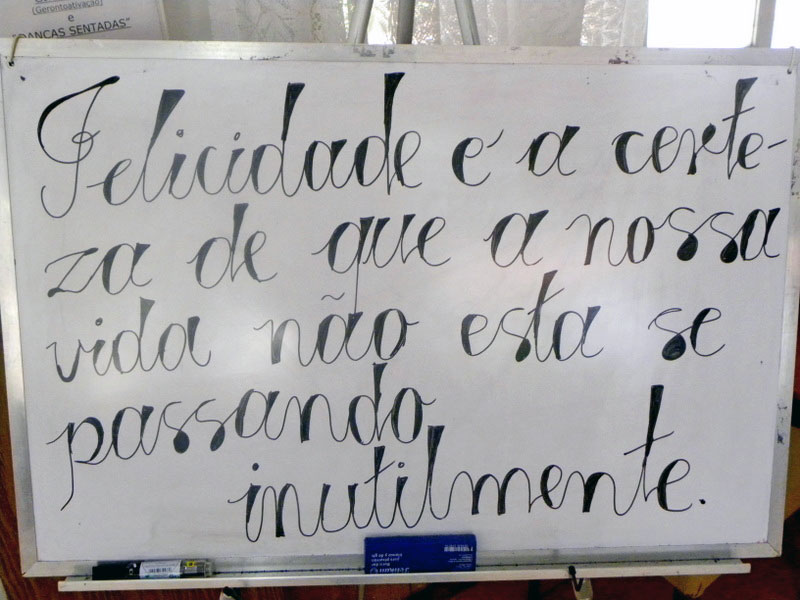 (Gerontoativação)
e
DANÇAS SENTADAS"
Felicidade é a certe-
za de que a nossa
vida não esta se
passando
inutilmente.